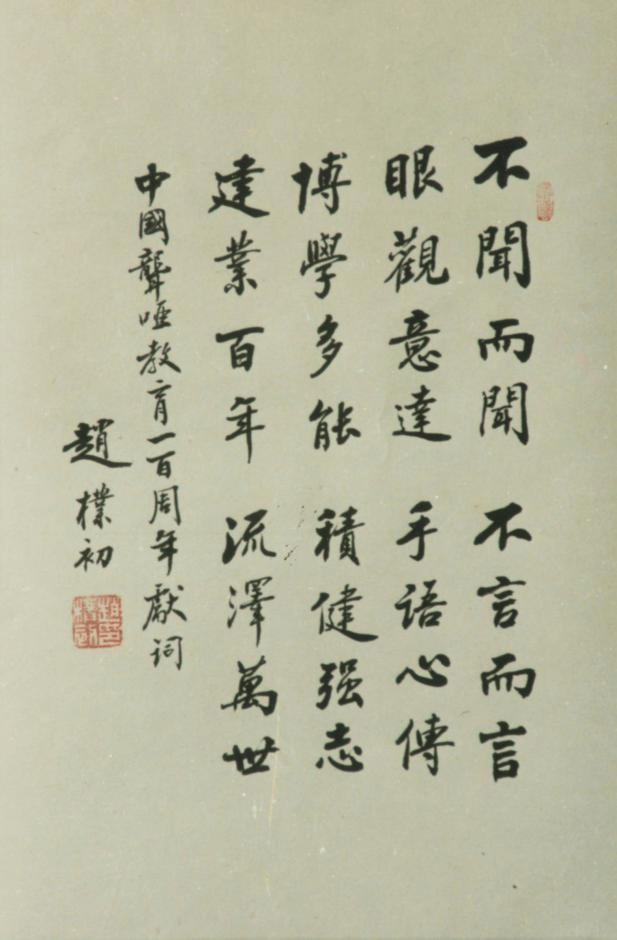 不聞而聞 不言而言
眼觀意達 手語心傳
博學多能 積健强志
建業百年 流澤萬世
中國聾啞教育一百周年獻詞
趙樸初